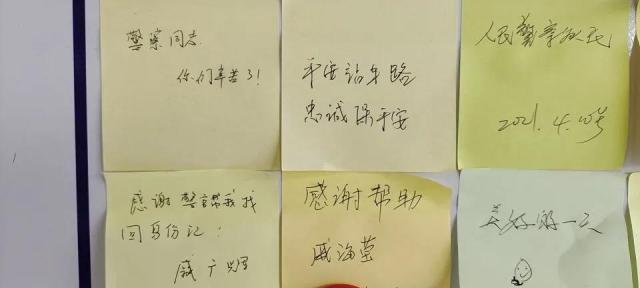 警察同志
你们辛苦了！
平安站年路
忠诚保平安
人民警察为人民
2021.4.10号
感谢警帮我找
回身份记：
戚广兴
感谢帮助
戚海莹
美好的一天